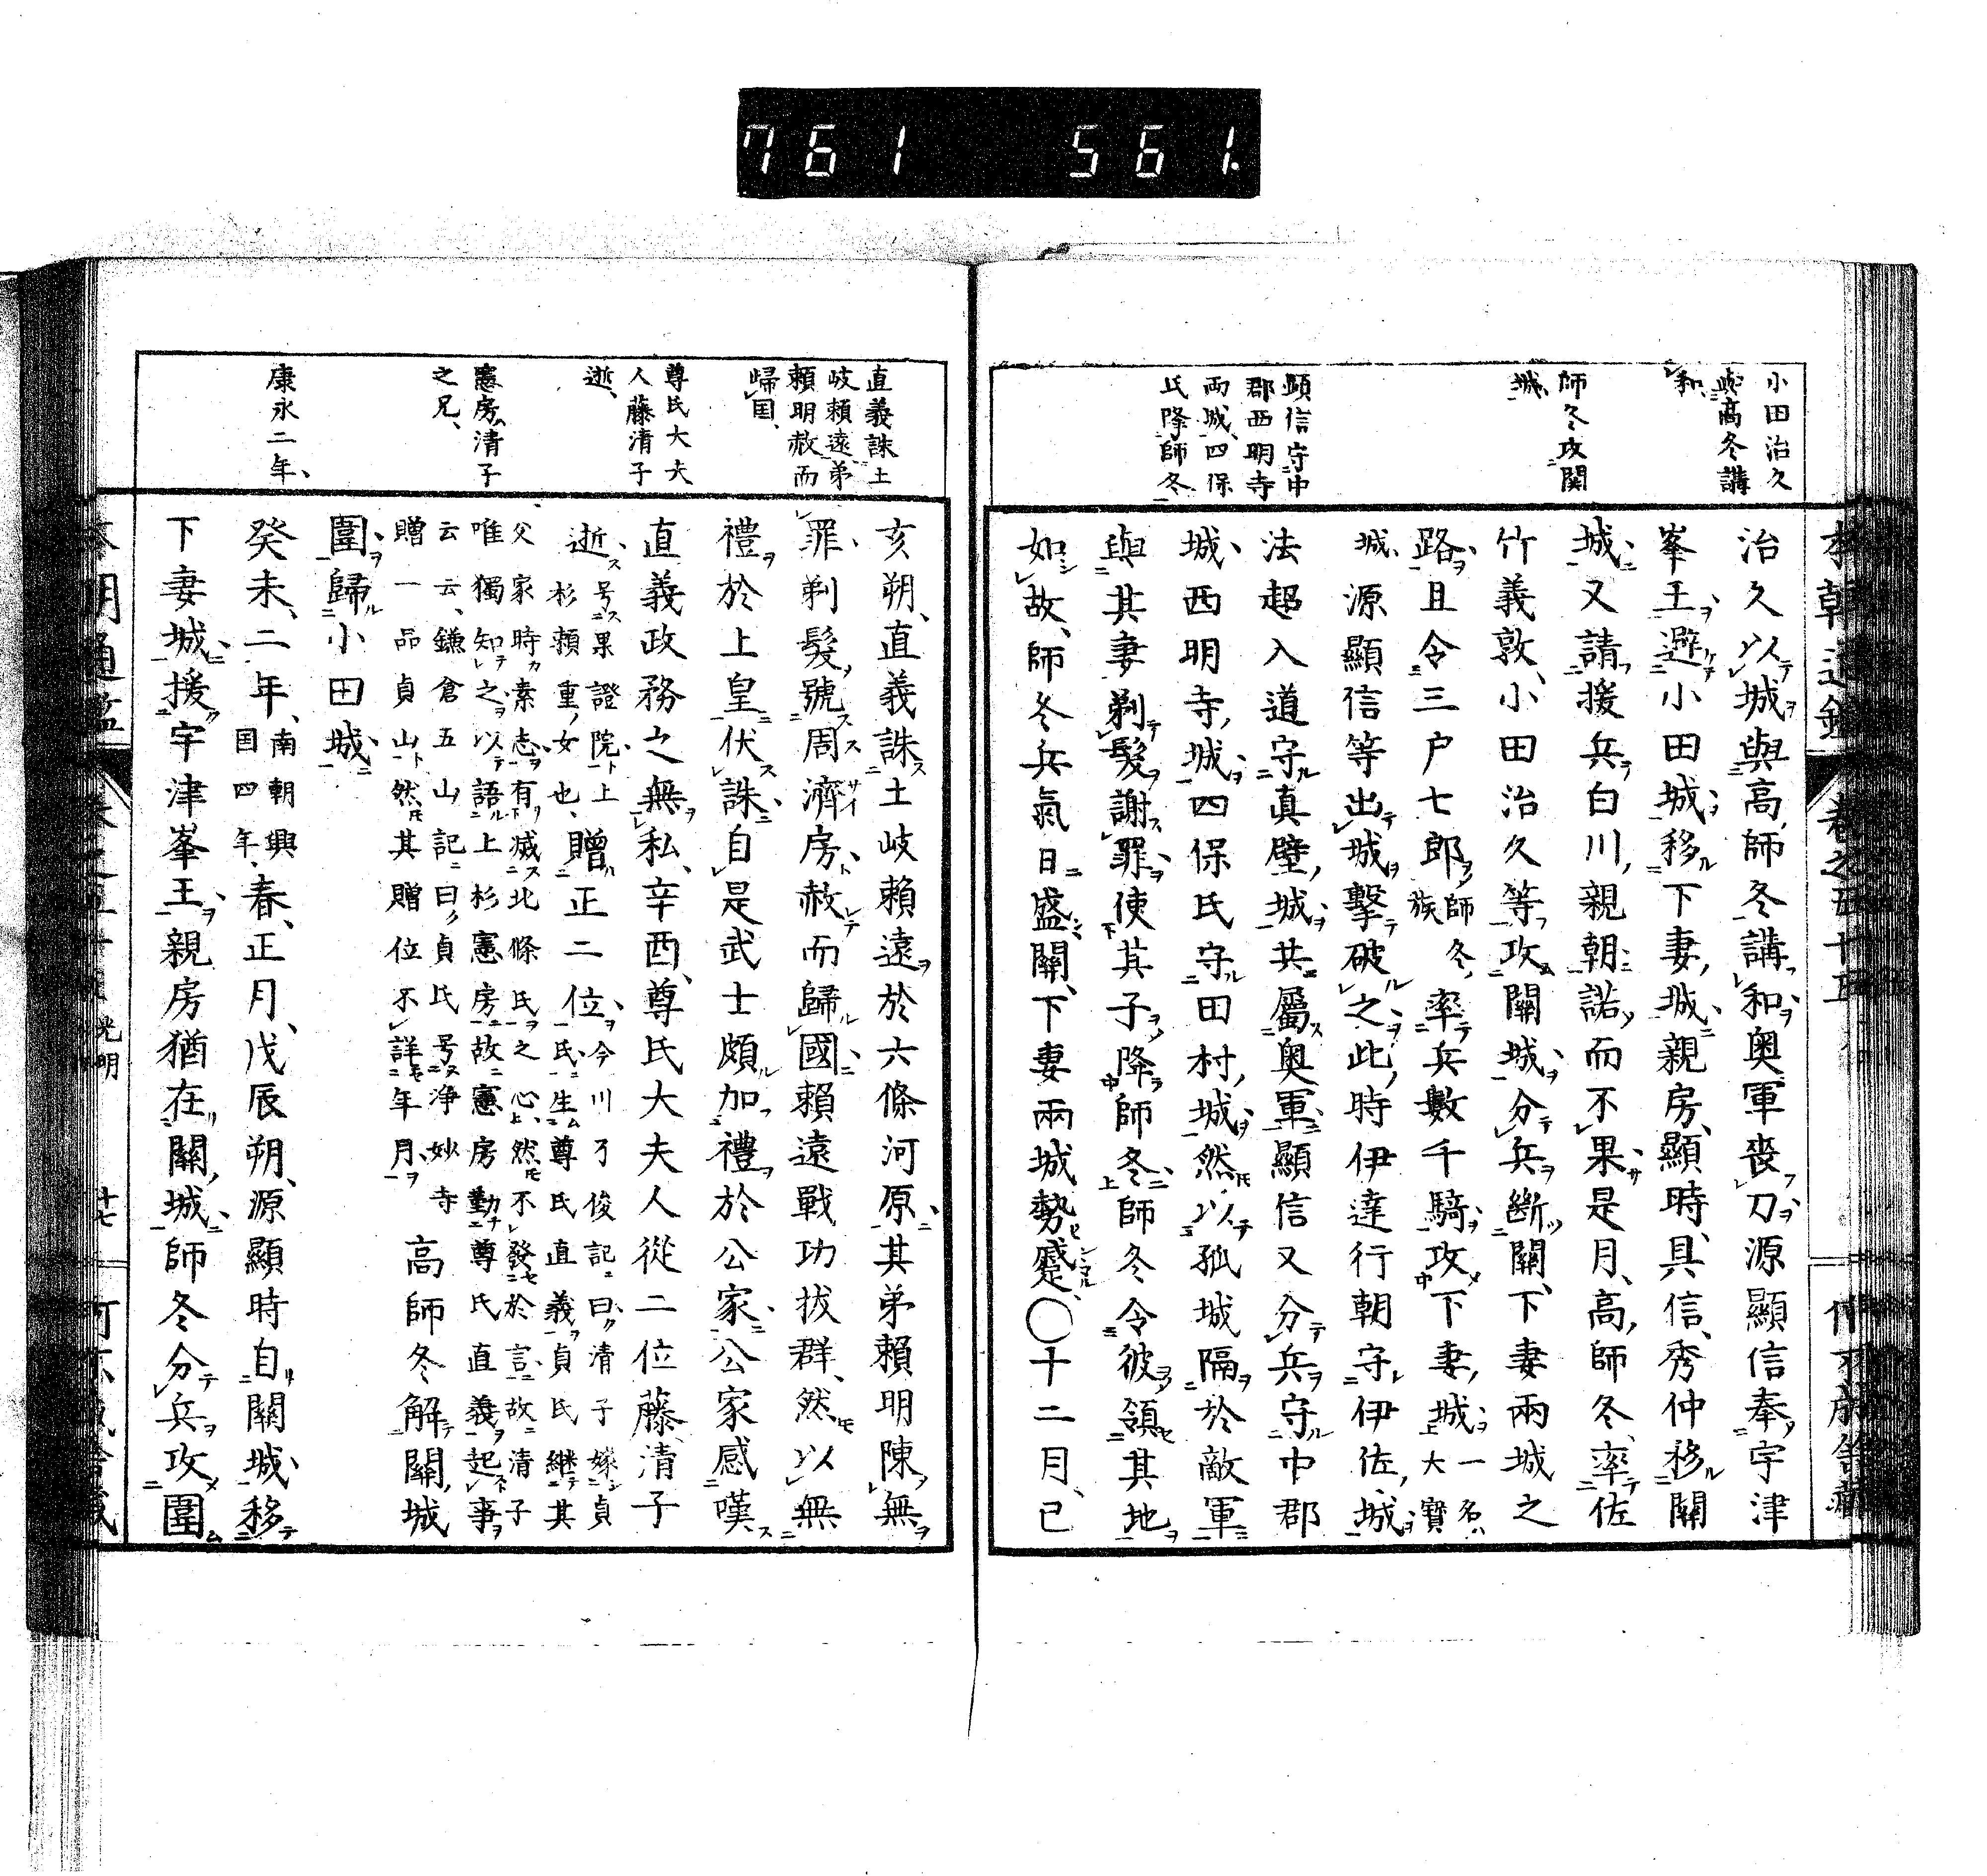 761 561.
小田治久
與高冬講
和
師冬攻関
城
顕信守中
郡西明寺
両城四保
氏降師冬
治久以城與高師冬講和奥軍喪刀源顯信奉宇津
峯王避小田城移下妻城親房顯時具信秀仲移關
城又請援兵白川親朝諾而不果是月高師冬率佐
竹義敦小田治久等攻關城分兵斷關下妻兩城之
路且令三戸七郎師冬族率兵數千騎攻下妻城一名大寶
城源顯信等出城擊破之此時伊達行朝守伊佐城
法超入道守真壁城共屬奥軍顯信又分兵守中郡
城西明寺城四保氏守田村城然以孤城隔於敵軍
與其妻剃髮謝罪使其子降師冬師冬令彼領其地
如故師冬兵氣日盛關下妻兩城勢蹙〇十二月己
直義誅土
岐頼遠弟
頼明赦而
帰国
尊氏大夫
人藤清子
逝
憲房清子
之兄
康永二年
亥朔直義誅土岐賴遠於六條河原其弟賴明陳無
罪剃髮號周濟房赦而歸國賴遠戰功拔群然以無
禮於上皇伏誅自是武士頗加禮於公家公家感嘆
直義政務之無私辛酉尊氏大夫人從二位藤清子
逝号果證院上杉賴重女也贈正二位今川了俊記曰清子嫁貞氏生尊氏直義貞氏継其
父家時素志有滅北條氏之心然不發於言故清子
唯獨知之以語上杉憲房故憲房勤尊氏直義起事
云云鎌倉五山記曰貞氏号浄妙寺
贈一品貞山然其贈位不詳年月
高師冬解關城
圍歸小田城
癸未二年南朝興国四年春正月戊辰朔源顯時自關城移
下妻城援宇津峯王親房猶在關城師冬分兵攻圍